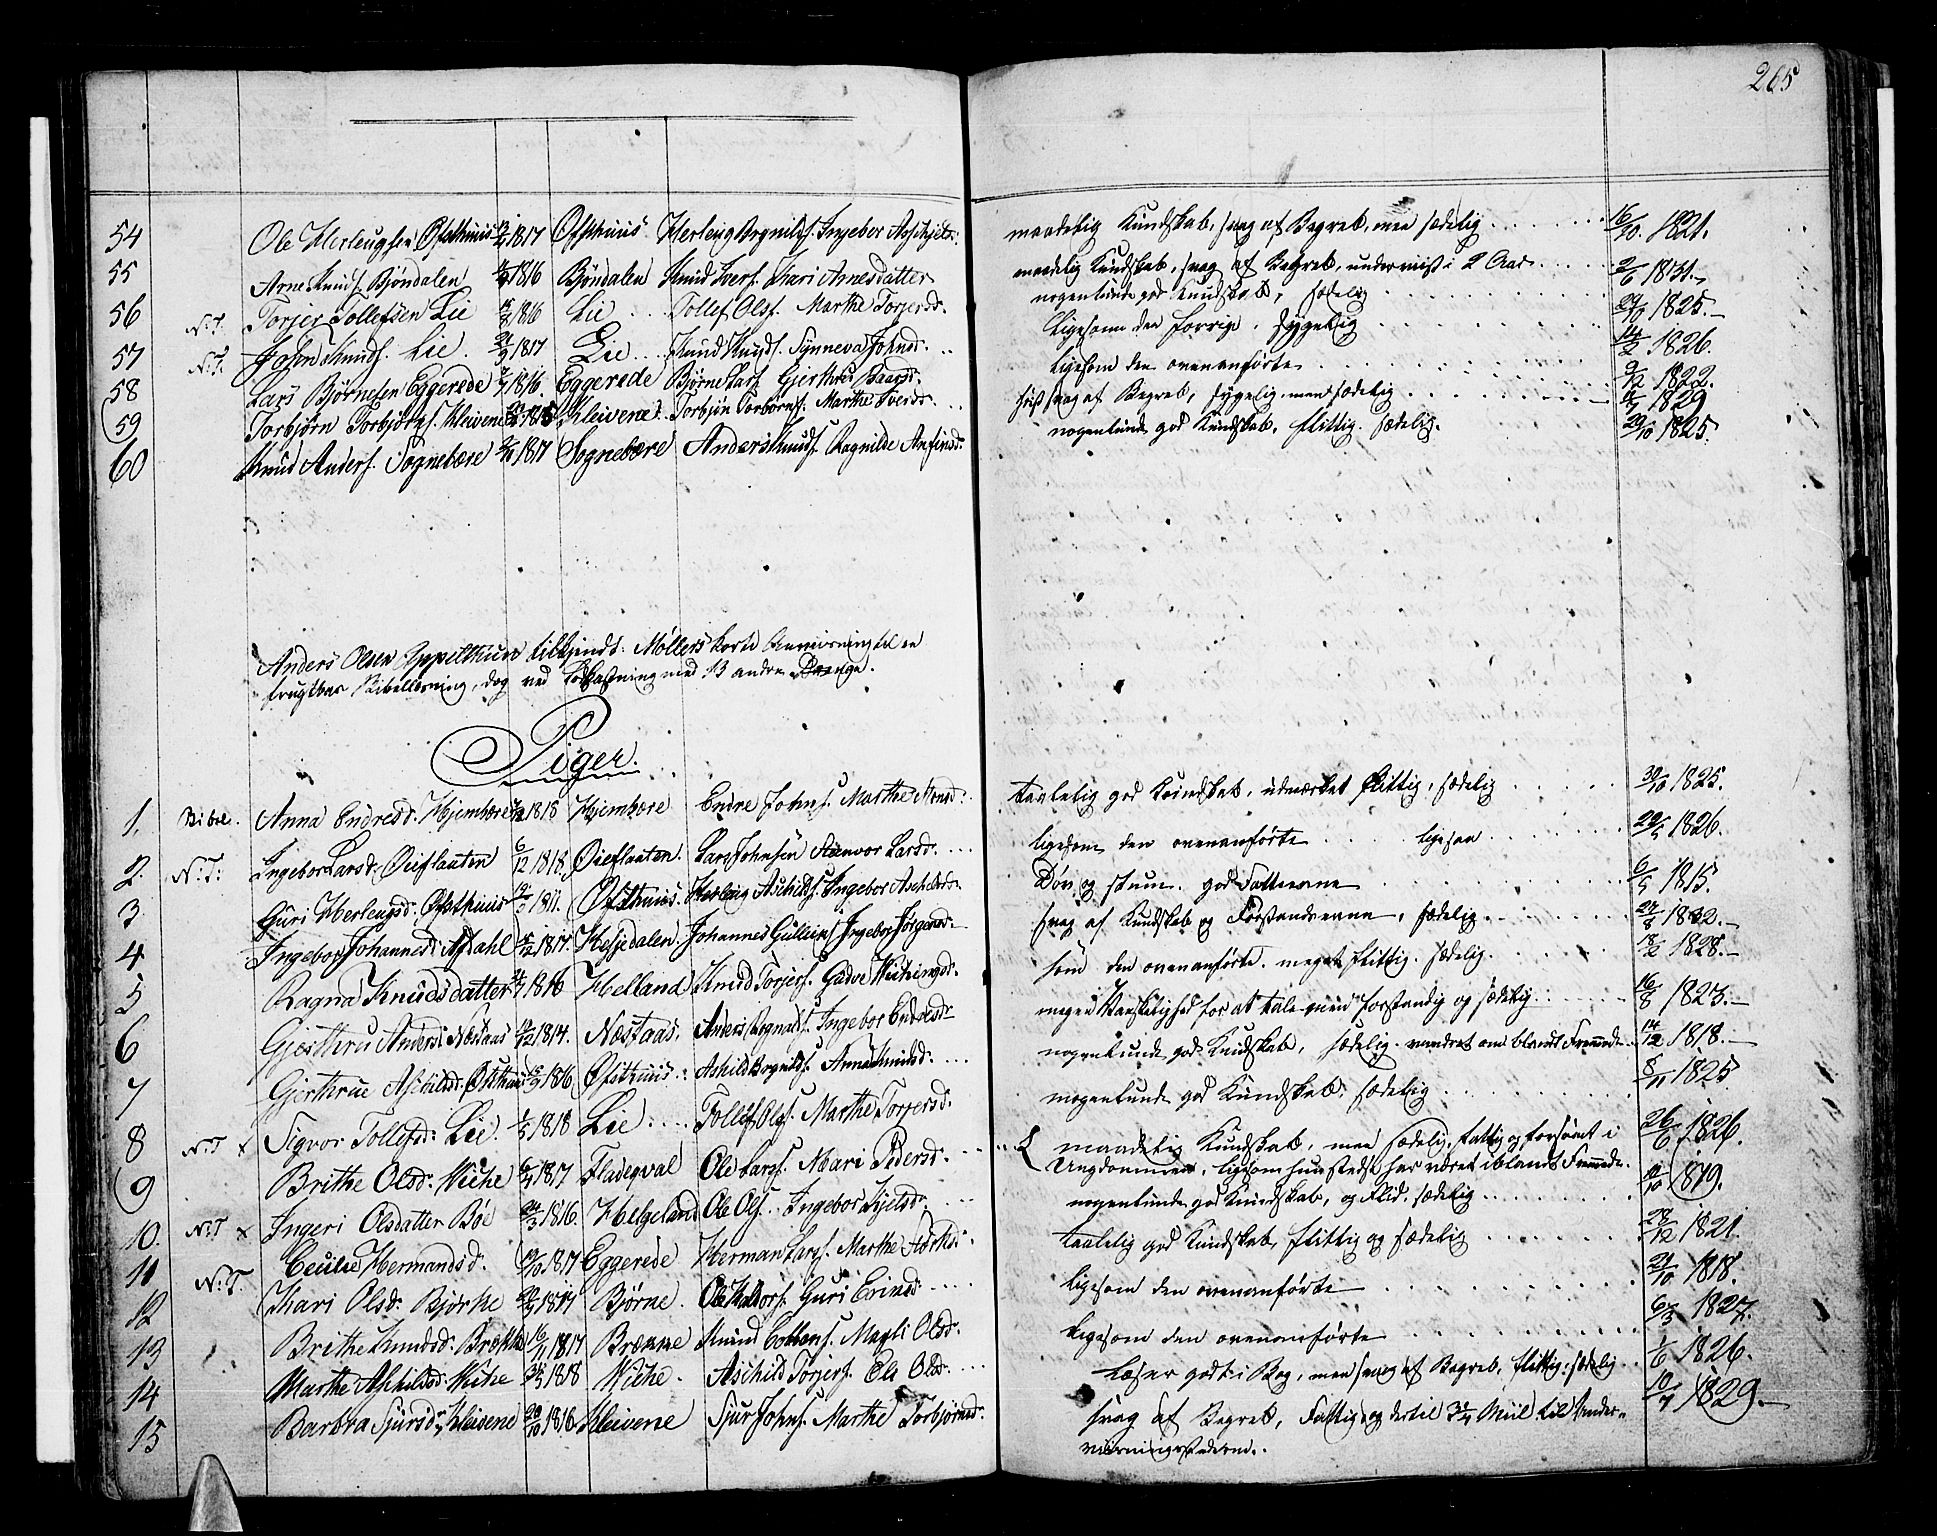 265
54 Ole Herleugsen Ofsthuus 1817 Ofsthuus Herleug Bognilds. Ingebor maadelig Kundskab, svag af Begreb, men sædelig 16/10 1821.
55 Arne Knuds. Bjøndalen 1816 Bjøndalen Knud Ivers. Kari Arnesdatter maadelig Kundskab, svag af Begreb, underviist i 2 Aar 2/6 1831.
56 N.T. Torjer Tollefsen Lie 1816 Lie Tollef Ols. Marthe Torjersd. nogenlunde god Kundskab, sædelig 1825.
57 N.T. John Knuds. Lie. 1817 Lie Knud Knuds. Synneva Johnsd. ligesom den forrige. sygelig 1826.
58 Lars Bjørnesen Eggerede 1816. Eggerede Bjørne Lars. Gjerthrue Baarsd. ligesom den ovenanførte 9/12 1822.
59 Torbjørn Torbjørns. Kleivene 1815 Kleivene Torbjøn Torbørns. Marthe Iversd. svag af Begreb, sygelig men sædelig 1829
60 Knud Anders. Sognebære 1817 Sognebære Anders Knuds. Ragnilde Anfindsd. nogenlunde god Kundskab, flittig. sædelig. 1825.
Anders Olsen tilkjendt: Møllers korte Anviisning til en
frugtbar Bibellæsning, dog ved Lodkastning med 13 andre Drenge.
Piger.
1. Bibel. Anna Endresd. Hjembære 1818 Hjembære Endre Johns. Marthe taalelig god Kundskab, udmærket flittig, sædelig 30/10 1825.
2. N:T: Ingebor Larsd: Øieflaaten 6/12 1818. Øieflaaten. Lars Johnsen Steenvor Larsd. ligesom den ovenanførte ligesaa 1826.
3 Guri Herleugsd. Ofsthuus 1811. Ofsthuus. Herleug Aschilds. Ingebor Døv og stum. god Fatteevne 6/5 1815.
4 Ingebor Johannesd. 1817. Hesjedalen. Johannes Gulleiks. Ingebor Jørgensd. svag af Kundskab og Forstandsevne, sædelig 1832.
5 Ragna Knudsdatter 1816 Helland Knud Torjers. Gudve Vikingsd. som den ovenanførte. meget flittig. sædelig. 18/2 1828.
6 Gjerthru Andersd. Næstaas 1814. Næstaas. Anders Rognalds. Ingebor Endresd. megen Vanskelighed for at tale men forstandig og sædelig 16/8 1823.
7 Gjerthrue Aschildsd. Ofsthuus 1816 Ofsthuus. Ashild Bognilds. Anna Knudsd. nogenlunde god Kundskab, sædelig. vandret om blandt Fremmede 14/12 1818.
8 N:T x Sigvor Tollefsd: Lie. 1/5 1818 Lie Tollef Ols. Marthe Torjersd. nogenlunde god Kundskab, sædelig 8/11 1825
9 Brithe Olsd. Wiche 1817 Fladeqval Ole Lars. Maari Pedersd. maadelig Kundskab, men sædelig, fattig og forsømt i 26/6 1826.
Ungdommen, ligesom hun stedse har været iblandt Fremmede.
10. N:T x Ingeri Olsdatter Bøe 1816. Helgeland Ole Ols. Ingebor Kjelsd. nogenlunde god Kundskab, og Flid. sædelig 1819.
11 N:T. Cecilie Hermandsd. 1817 Eggerede Herman Lars. Marthe taalelig god Kundskab, flittig og sædelig 28/12 1821.
12 Kari Olsd: Bjørke 1817 Bjørne. Ole Haldors. Guri Erinsd. ligesom den ovenanførte 21/10 1818.
13 Brithe Knudsd. Brække 16/11 1817 Brække Knud Colbens. Magli Olsd. ligesom den ovenanførte 6/3 1827.
14 Marthe Aschildsd. Wiche 1818 Wiche. Aschild Torjers. Eli Olsd. Læser godt i Bog, men svag af Begreb, flittig. sædelig 1/6 1826.
15 Barbra Sjursd. Kleivene 20/10 1816 Kleivene Sjur Johns. Marthe Torbjørnsd. svag af Begreb, Fattig og dertil 3¼ Miil til Under-
viisningsstederne. 10/7 1829.